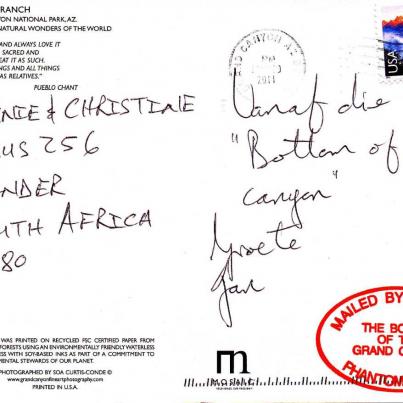 RANCH
YON NATIONAL PARK, AZ.
NATURAL WONDERS OF THE WORLD
AND ALWAYS LOVE IT
SACRED AND
EAT IT AS SUCH.
NGS AND ALL THINGS
AS RELATIVES."
PUEBLO CHANT
NIE & CHRISTINE
US 256
NDER
UTH AFRICA
80
WAS PRINTED ON RECYCLED FSC CERTIFIED PAPER FROM
FORESTS USING AN ENVIRONMENTALLY FRIENDLY WATERLESS
SS WITH SOY-BASED INKS AS PART OF A COMMITMENT TO
MENTAL STEWARDS OF OUR PLANET.
PHOTOGRAPHY © SOA CURTIS-CONDE ©
www.grandcanyonfineartphotography.com
PRINTED IN U.S.A.
CANYON
2011
USA
Vanaf die
"Bottom of
canyon"
Groete
Jan
m
mosaic
MAILED BY
THE BO
OF T
GRAND C
PHANTOM